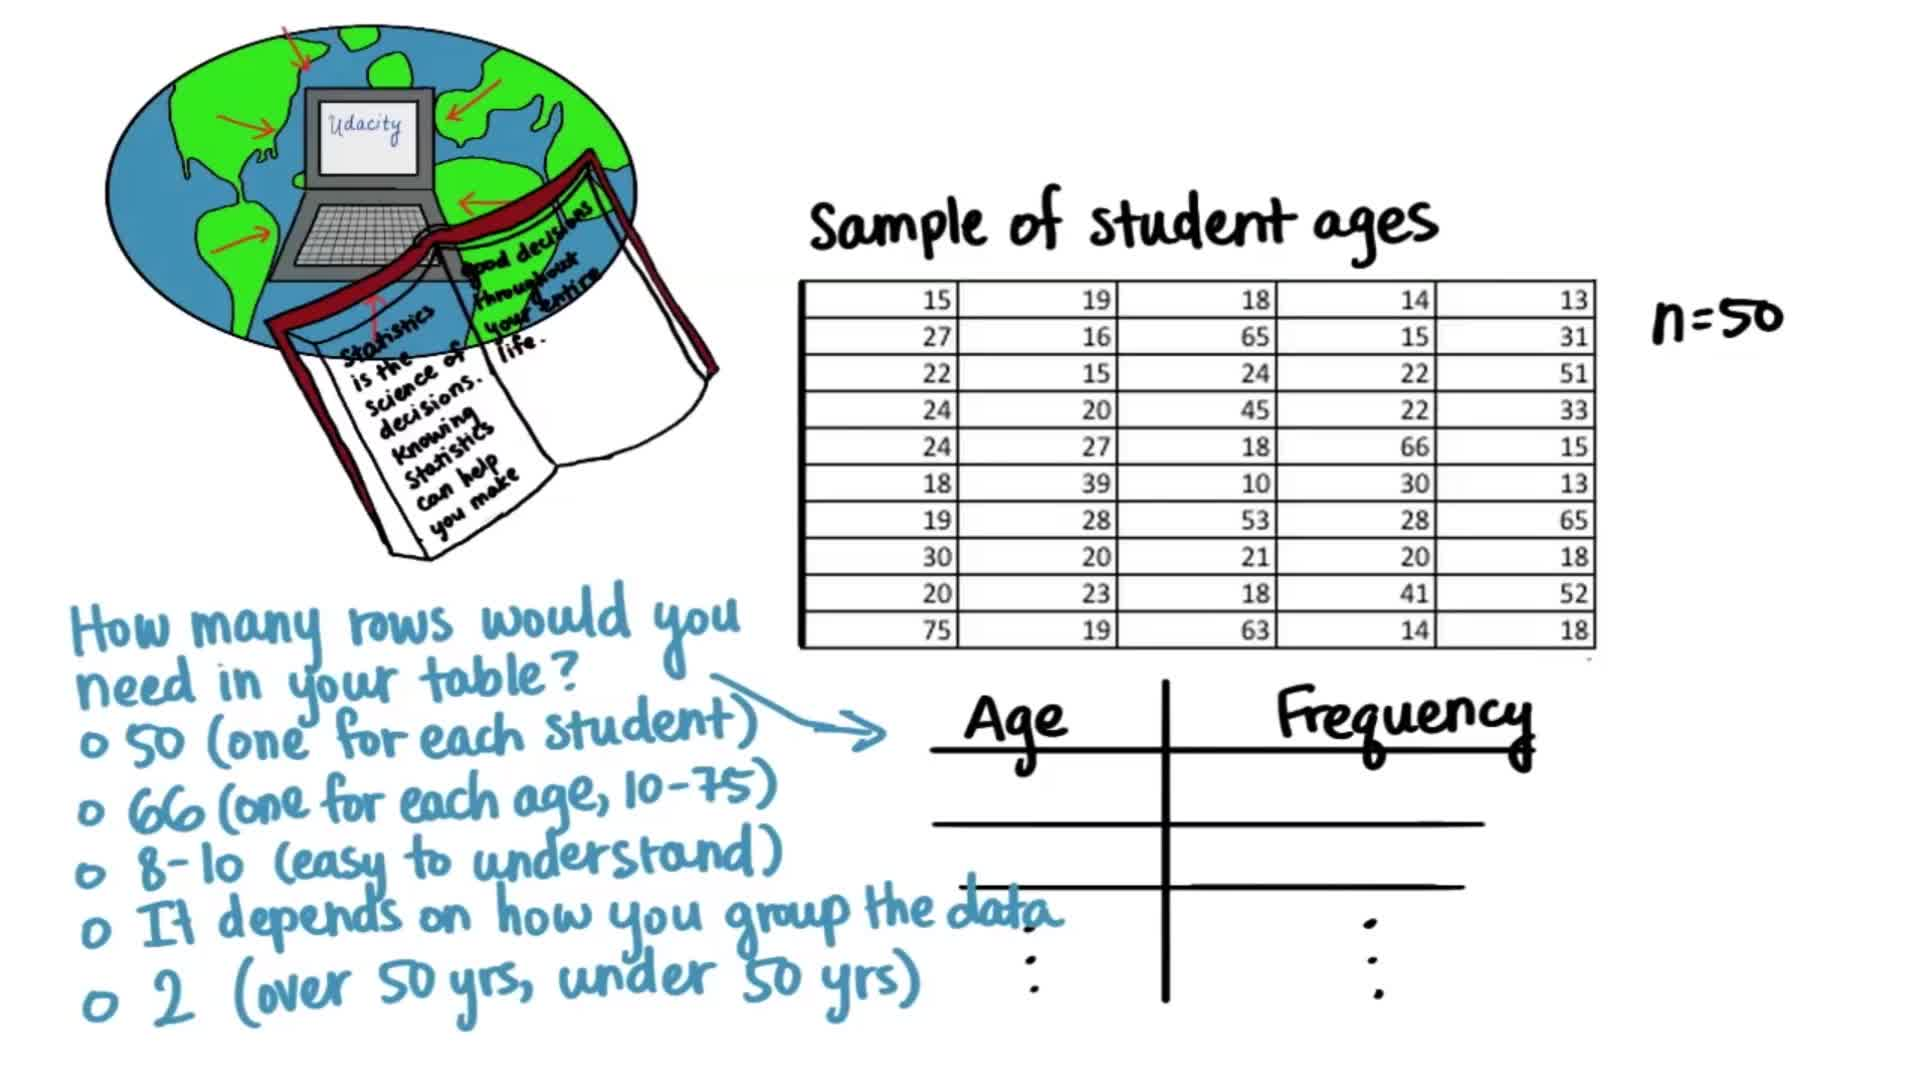 Udacity
Statistics
is the
science of
decisions.
Knowing
Statistics
can help
you make
good decisions
throughout
your entire
life.
Sample of student ages
15 19 18 14 13
27 16 65 15 31
22 15 24 22 51
24 20 45 22 33
24 27 18 66 15
18 39 10 30 13
19 28 53 28 65
30 20 21 20 18
20 23 18 41 52
75 19 63 14 18
n=50
How many rows would you
need in your table?
50 (one for each student)
66 (one for each age, 10-75)
8-10 (easy to understand)
It depends on how you group the data
2 (over 50 yrs, under 50 yrs)
Age Frequency